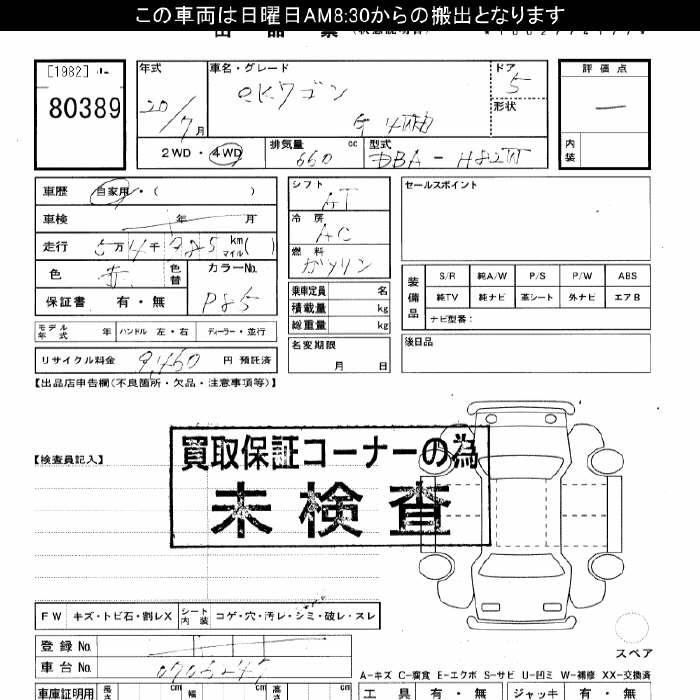 この車両は日曜日AM8:30からの搬出となります
[1982]
80389
年式
20/7月
車名・グレード
eKワゴン
G 4WD
ドア
5
形状
評価点
内装
2WD・4WD
排気量
660 cc
型式
DBA-H82W
車歴 自家用・( )
車検 年 月
走行 5万4千 km マイル( )
色 赤 色替
カラーNo.
P85
保証書 有・無
シフト
AT
冷房
AC
燃料
ガソリン
乗車定員 名
積載量 kg
総重量 kg
名変期限
月 日
セールスポイント
装備品
S/R 純A/W P/S P/W ABS
純TV 純ナビ 革シート 外ナビ エアB
ナビ型番：
後日品
モデル年式 年 ハンドル 左・右 ディーラー・並行
リサイクル料金 9,460 円 預託済
【出品店申告欄(不良箇所・欠品・注意事項等)】
買取保証コーナーの為
未検査
【検査員記入】
FW キズ・トビ石・割レX シート内装 コゲ・穴・汚レ・シミ・破レ・スレ
スペア
登録No.
車台No. 0703247
A-キズ C-腐食 E-エクボ S-サビ U-凹ミ W-補修 XX-交換済
車庫証明用 長さ cm 幅 cm 高さ cm
工具 有・無 ジャッキ 有・無